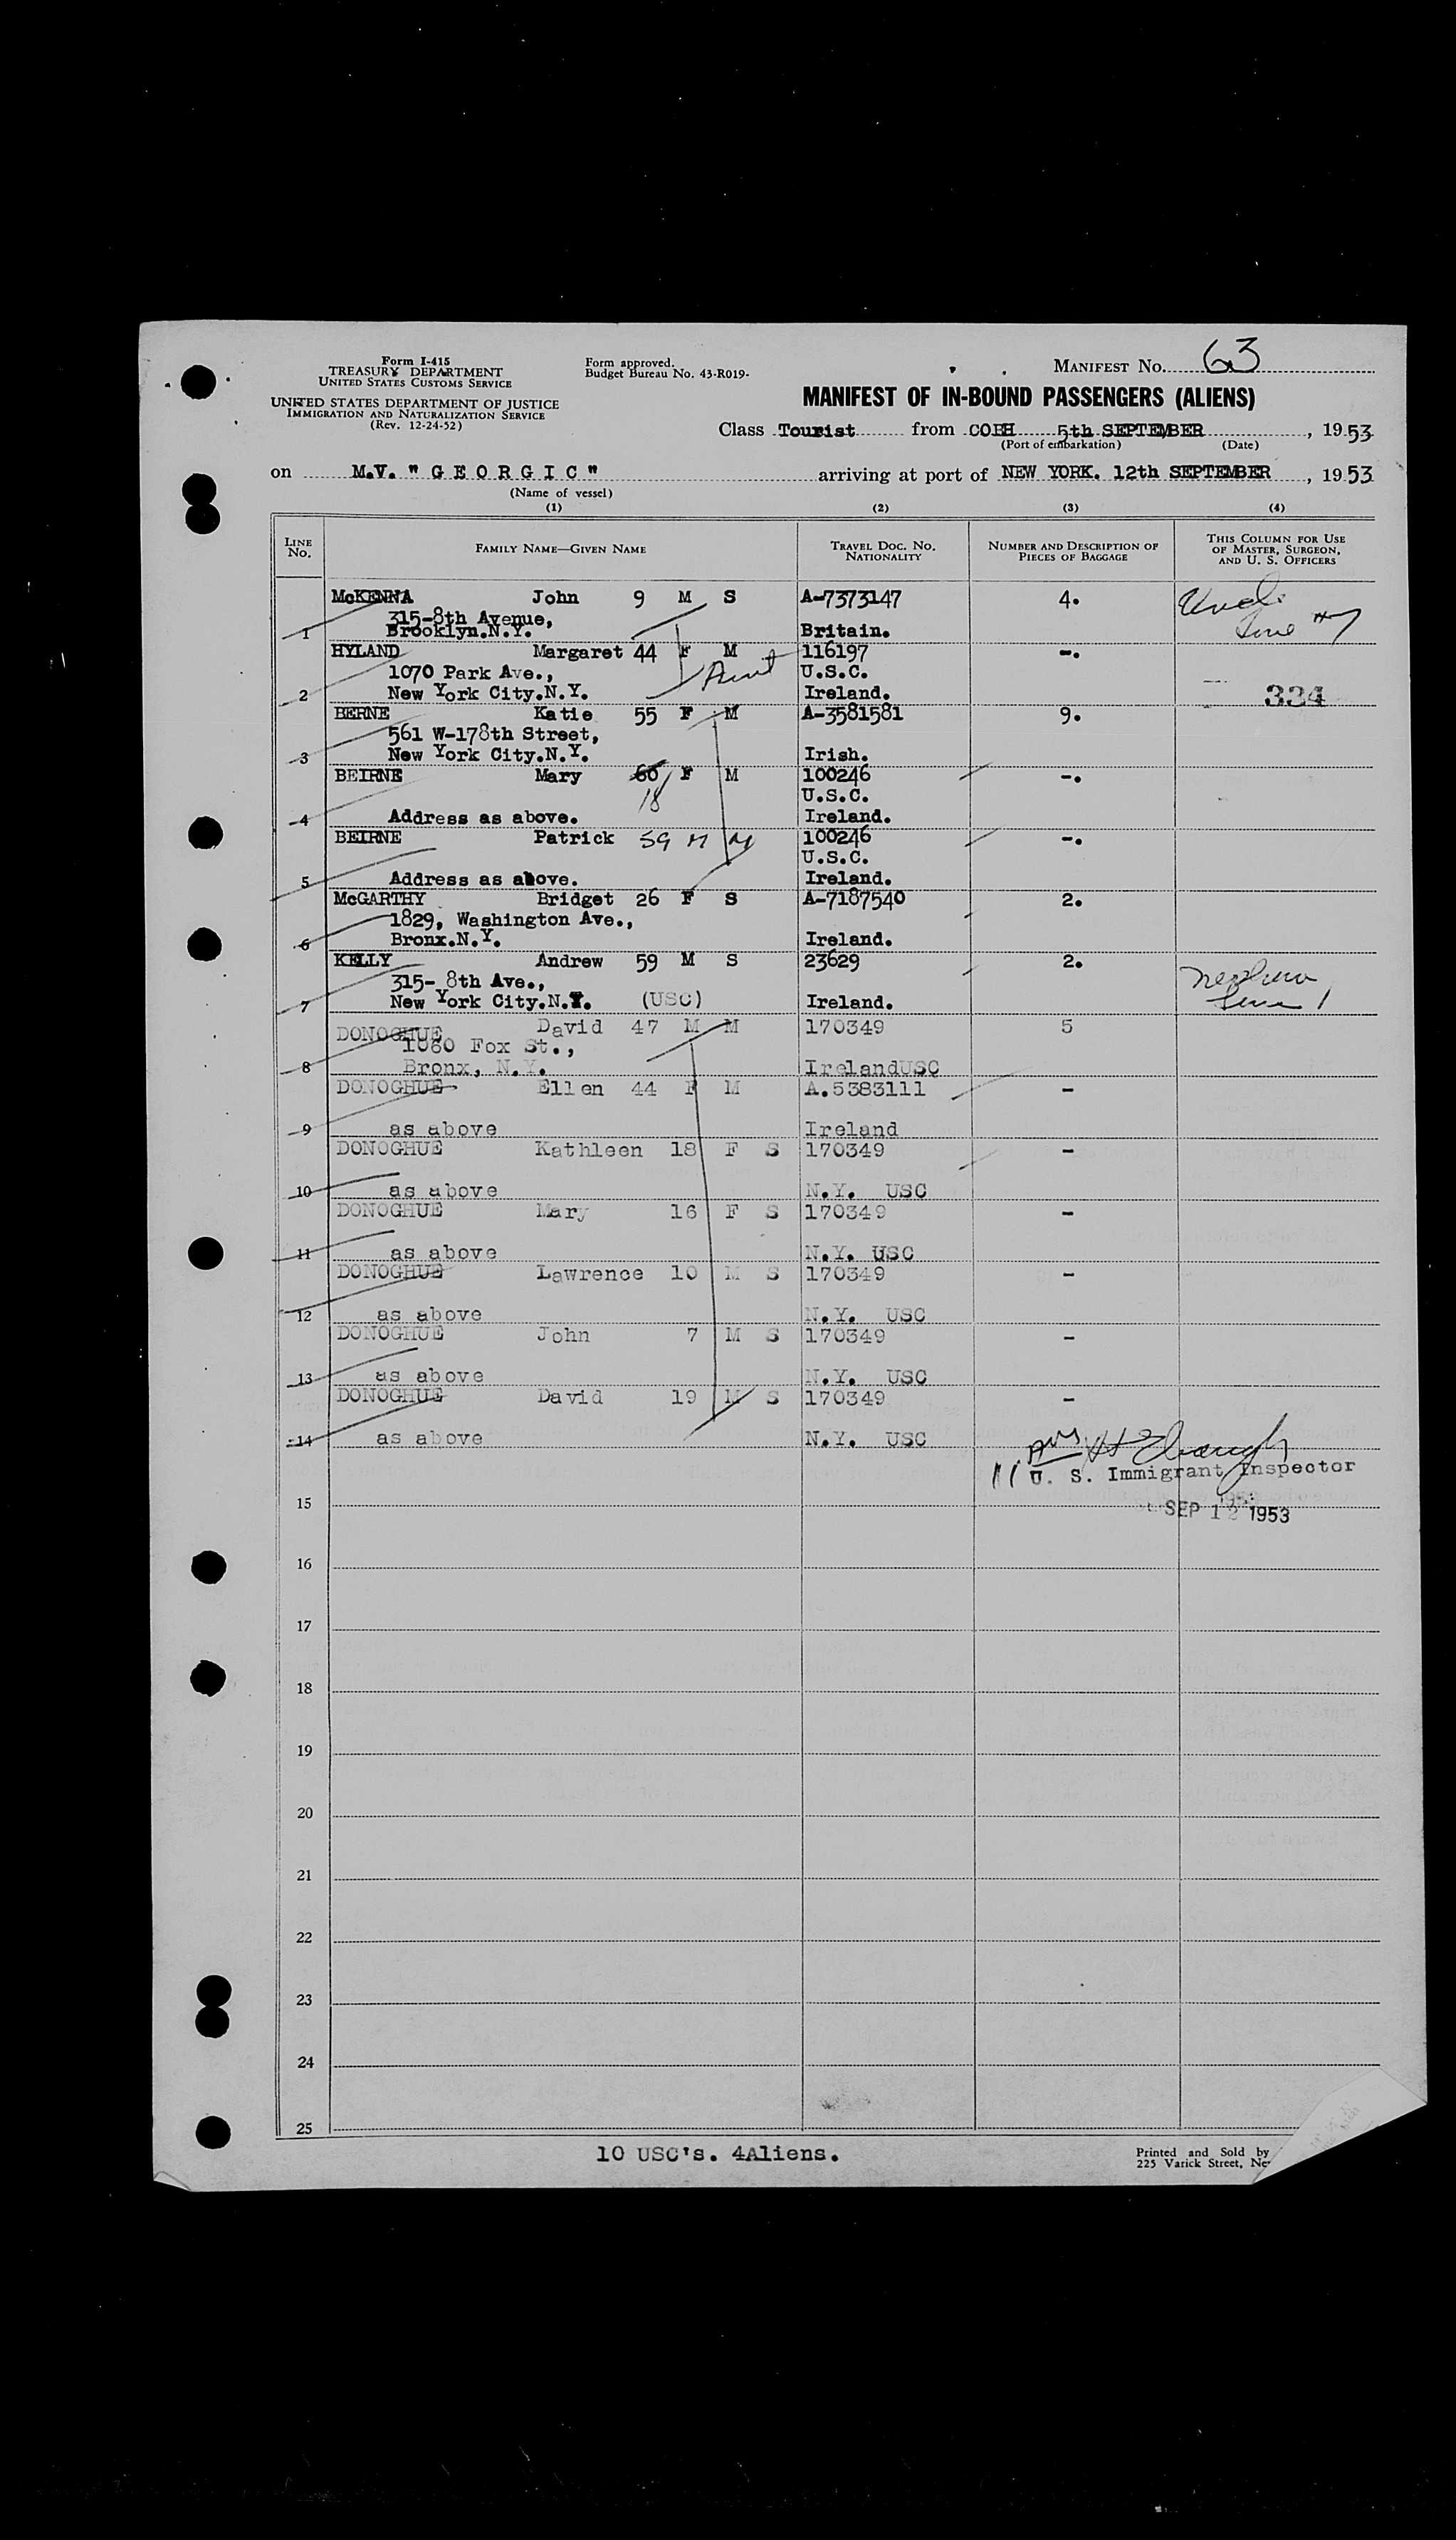 Form I-415
TREASURY DEPARTMENT
UNITED STATES CUSTOMS SERVICE
UNITED STATES DEPARTMENT OF JUSTICE
IMMIGRATION AND NATURALIZATION SERVICE
(Rev. 12-24-52)
Form approved.
Budget Bureau No. 43-R019-
MANIFEST NO. 63
MANIFEST OF IN-BOUND PASSENGERS (ALIENS)
Class Tourist from COBH 5th SEPTEMBER, 1953
(Port of embarkation) (Date)
on M.V. "GEORGIC" arriving at port of NEW YORK. 12th SEPTEMBER, 1953
(Name of vessel)
(1) (2) (3) (4)
LINE NO. FAMILY NAME—GIVEN NAME TRAVEL DOC. NO. NATIONALITY NUMBER AND DESCRIPTION OF PIECES OF BAGGAGE THIS COLUMN FOR USE OF MASTER, SURGEON, AND U. S. OFFICERS
McKENNA John 9 M S A-7373147 4. Uncle
315-8th Avenue, Line #7
1 Brooklyn.N.Y. Britain.
HYLAND Margaret 44 F M 116197 -.
1070 Park Ave., Aunt U.S.C.
2 New York City.N.Y. Ireland. 334
BERNE Katie 55 F M A-3581581 9.
561 W-178th Street,
3 New York City.N.Y. Irish.
BEIRNE Mary 60 F M 100246 -.
18 U.S.C.
4 Address as above. Ireland.
BEIRNE Patrick 59 M M 100246 -.
U.S.C.
5 Address as above. Ireland.
McGARTHY Bridget 26 F S A-7187540 2.
1829, Washington Ave.,
6 Bronx.N.Y. Ireland.
KELLY Andrew 59 M S 23629 2. Nephew
315- 8th Ave., Line 1
7 New York City.N.Y. (USC) Ireland.
DONOGHUE David 47 M M 170349 5
1060 Fox St.,
8 Bronx, N.Y. IrelandUSC
DONOGHUE Ellen 44 F M A.5383111 -
9 as above Ireland
DONOGHUE Kathleen 18 F S 170349 -
10 as above N.Y. USC
DONOGHUE Mary 16 F S 170349 -
11 as above N.Y. USC
DONOGHUE Lawrence 10 M S 170349 -
12 as above N.Y. USC
DONOGHUE John 7 M S 170349 -
13 as above N.Y. USC
DONOGHUE David 19 M S 170349 -
14 as above N.Y. USC
U. S. Immigrant Inspector
15 SEP 12 1953
16
17
18
19
20
21
22
23
24
25
10 USC's. 4Aliens.
Printed and Sold by
225 Varick Street,